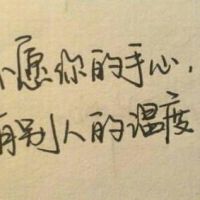 不愿你的手心,
有别人的温度